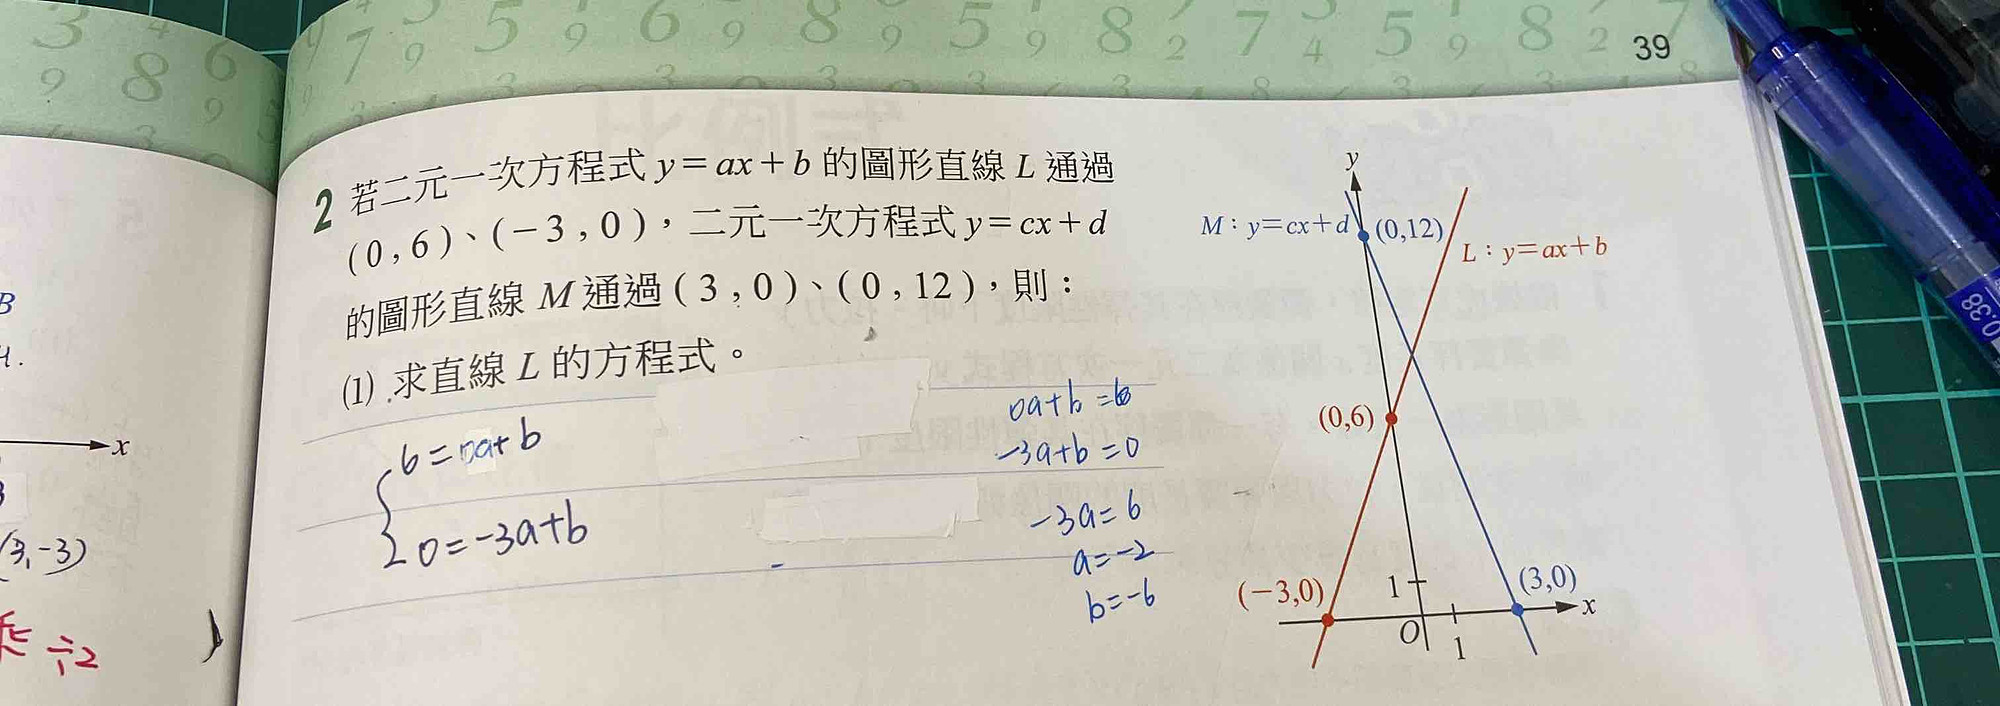 39
B
x
(3,-3)
÷2
2 若二元一次方程式 y=ax+b 的圖形直線 L 通過
(0,6)、(-3,0),二元一次方程式 y=cx+d
的圖形直線 M 通過(3,0)、(0,12),則:
(1) 求直線 L 的方程式。
6=0a+b
0=-3a+b
0a+b=6
-3a+b=0
-3a=6
a=-2
b=-6
y
M:y=cx+d
(0,12)
L:y=ax+b
(0,6)
(-3,0)
1
(3,0)
x
O
1
0.38